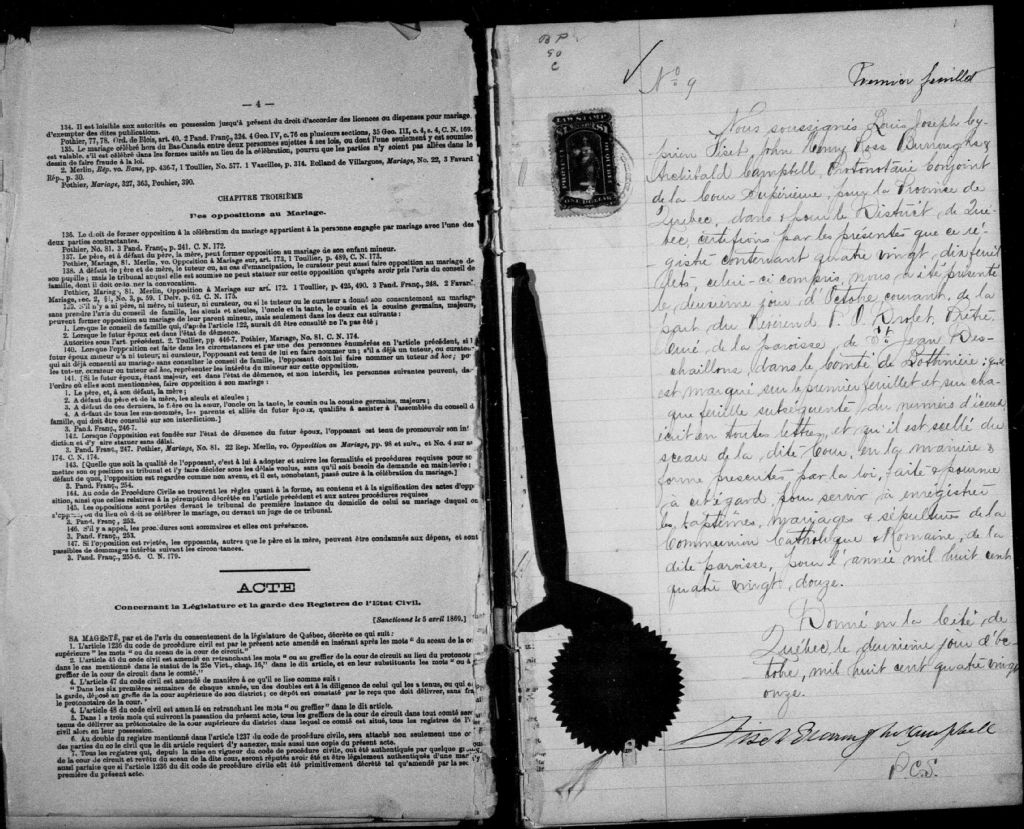 — 4 —
134. Il est loisible aux autorités en possession jusqu'à présent du droit d'accorder des licences ou dispenses pour mariage
d'exempter des dites publications.
Pothier, 77, 78. Ord. de Blois, art. 40. 2 Pand. Franç., 324. 4 Geo. IV, c. 76 en plusieurs sections, 35 Geo. III, c. 4, s. 4, C. N. 169.
135. Le mariage célébré hors du Bas-Canada entre deux personnes sujettes à ses lois, ou dont l'une seulement y est soumise
est valable, s'il est célébré dans les formes usités au lieu de la célébration, pourvu que les parties n'y soient pas allées dans le
dessin de faire fraude à la loi.
2. Merlin, Rép. vo. Bans, pp. 436-7, 1 Toullier, No. 577. 1 Vazeilles, p. 314. Rolland de Villargues, Mariage, No. 22, 3 Favard
Rép., p. 30.
Pothier, Mariage, 327, 363, Pouhier, 390.
CHAPITRE TROISIÈME
Des oppositions au Mariage.
136. Le droit de former opposition à la célébration du mariage appartient à la personne engagée par mariage avec l'une des
deux parties contractantes.
Pothier, No. 81. 3 Pand. Franç., p. 241. C. N. 172.
137. Le père, et à défaut du père, la mère, peut former opposition au mariage de son enfant mineur.
Pothier, Mariage, 81. Merlin, vo. Opposition à Mariage sur art. 173, 1 Toullier, p. 489, C. N. 173.
138. A défaut de père et de mère, le tuteur ou, au cas d'émancipation, le curateur peut aussi faire opposition au mariage de
son pupille; mais le tribunal auquel elle est soumise ne peut statuer sur cette opposition qu'après avoir pris l'avis du conseil de
famille, dont il doit ordonner la convocation.
Pothier, Mariag., 81. Merlin, Opposition à Mariage sur art. 172. 1 Toullier, p. 425, 490. 3 Pand. Franç., 248. 2 Favard
Mariage, sec. 2, §1, No. 3, p. 59. 1 Delv. p. 62. C. N. 175.
139. S'il n'y a ni père, ni mère, ni tuteur, ni curateur, ou si le tuteur ou le curateur a donné son consentement au mariage
sans prendre l'avis du conseil de famille, les aïeuls et aïeules, l'oncle et la tante, le cousin et la cousine germains, majeurs,
peuvent former opposition au mariage de leur parent mineur, mais seulement dans les deux cas suivants:
1. Lorsque le conseil de famille qui, d'après l'article 122, aurait dû être consulté ne l'a pas été;
2. Lorsque le futur époux est dans l'état de démence.
Autorités sous l'art. précédent. 2 Toullier, pp 446-7. Pothier, Mariage, No. 81. C. N. 174.
140. Lorsque l'opposition est faite dans les circonstances et par une des personnes énumérées en l'article précédent, si le
futur époux mineur n'a ni tuteur, ni curateur, l'opposant est tenu de lui en faire nommer un; s'il a déjà un tuteur, ou curateur
qui ait déjà consenti au mariage sans consulter le conseil de famille, l'opposant doit lui faire nommer un tuteur ad hoc; po
les tuteur, curateur ou tuteur ad hoc, représenter les intérêts du mineur sur cette opposition.
141. [Si le futur époux, étant majeur, est dans l'état de démence, et non interdit, les personnes suivantes peuvent, da
l'ordre où elles sont mentionnées, faire opposition à son mariage:
1. Le père, et, à son défaut, la mère;
2. A défaut du père et de la mère, les aïeuls et aïeules;
3. A défaut de ces derniers, le frère ou la sœur, l'oncle ou la tante, le cousin ou la cousine germains, majeurs;
4. A défaut de tous les sus-nommés, les parents et alliés du futur époux, qualifiés à assister à l'assemblée du conseil d
famille, qui doit être consulté sur son interdiction.]
3. Pand. Franç., 246-7.
142. Lorsque l'opposition est fondée sur l'état de démence du futur époux, l'opposant est tenu de promouvoir son in
diction et d'y faire statuer sans délai.
3. Pand. Franç., 247. Pothier, Mariage, No. 81. 22 Rep. Merlin, vo. Opposition au Mariage, pp. 98 et suiv., et No. 4 sur a
174. C. N. 174.
143. [Quelle que soit la qualité de l'opposant, c'est à lui à adopter et suivre les formalités et procédures requises pour so
mettre son opposition au tribunal et l'y faire décider sous les délais voulus, sans qu'il soit besoin de demande en main-levée:
défaut de quoi, l'opposition est regardée comme non avenu, et il est, nonobstant, passé outre à la célébration du mariage.]
3. Pand. Franç., 254.
144. Au code de Procédure Civile se trouvent les règles quant à la forme, au contenu et à la signification des actes d'opp
sition, ainsi que celles relatives à la péremption décrétée en l'article précédent et aux autres procédures requises
145. Les oppositions sont portées devant le tribunal de première instance du domicile de celui au mariage duquel on
s'oppose, ou du lieu où doit se célébrer le mariage, ou devant un juge de ce tribunal.
3. Pand. Franç., 253.
146. S'il y a appel, les procédures sont sommaires et elles ont préséance.
3. Pand. Franç., 253.
147. Si l'opposition est rejetée, les opposants, autres que le père et la mère, peuvent être condamnés aux dépens, et sont
passibles de dommages intérêts suivant les circonstances.
3. Pand. Franç., 255-6. C. N. 179.
ACTE
Concernant la Législature et la garde des Registres de l'Etat Civil.
[Sanctionné le 5 avril 1869.]
SA MAGESTÉ, par et de l'avis du consentement de la législature de Québec, décrète ce qui suit:
1. L'article 1236 du code de procédure civil est par le présent acte amendé en insérant après les mots " du sceau de la co
supérieure " les mots " ou du sceau de la cour de circuit."
2. L'article 45 du code civil est amendé en retranchant les mots " ou au greffier de la cour de circuit au lieu du protonot
dans le cas mentionné dans le statut de la 25e Vict., chap. 16," dans le dit article, et en leur substituants les mots " ou à
greffier de la cour de circuit dans le comté."
4. L'article 47 du code civil est amendé de manière à ce qu'il se lise comme suit:
" Dans les six premières semaines de chaque année, un des doubles est à la diligence de celui qui les a tenus, ou qui e
la garde, déposé au greffe de la cour supérieure de son district; ce dépôt est constaté par le reçu que doit délivrer, sans fra
le protonotaire de la cour.
4. L'article 48 du code civil est amendé en retranchant les mots " ou greffier " dans le dit article.
5. Dans les trois mois qui suivront la passation du présent acte, tous les greffiers de la cour de circuit dans tout comté sero
tenus de délivrer au protonotaire de la cour supérieure du district dans lequel ce comté est situé, tous les registres de l'é
civil alors en leur possession.
6. Au double du registre mentionné dans l'article 1237 du code de procédure civile, sera attaché non seulement une co
des parties du code civil que le dit article requiert d'y annexer, mais aussi une copie du présent acte.
7. Tous les registres qui, depuis la mise en vigueur du code de procédure civile, ont été authentiqués par quelque g
de la cour de circuit et revêtu du sceau de la dite cour, seront réputés avoir été et être légalement authentiqués d'une ma
aussi parfaite que si l'article 1236 du dit code de procédure civile eût été primitivement décrété tel qu'amendé par la sec
première du présent acte.
B P
90
C
No 9
Premier feuillet
1
LAW STAMP
$1
$1
ONE DOLLAR
Nous soussignés Louis Joseph Cy-
prien Fiset John Henry Ross Burroughs &
Archibald Campbell, Protonotaire Conjoint
de la Cour Supérieure, pour la Province de
Québec, dans & pour le District de Qué-
bec, certifions par les présentes que ce ré-
gistre contenant quatre vingt dix feuil-
lets, celui-ci compris, nous a été présenté
le deuxième jour d'Octobre courant, de la
part du Révérend P. O. Drolet, Prêtre
Curé, de la paroisse, de St Jean Des-
chaillons, dans le Comté de Lotbinière; qu'il
est marqué sur le premier feuillet et sur cha-
que feuille subséquente, du numéro d'iceux
écrit en toutes lettres, et qu'il est scellé du
sceau de la dite Cour, en la manière &
forme presentés par la loi, faite & pourvue
à cet égard, pour servir à enrégistrer
les baptêmes, mariages & sépultures de la
Communion Catholique & Romaine, de la
dite paroisse, pour l'année mil huit cent
quatre vingt, douze.
Donné en la Cité, de
Québec, le deuxième jour d'Oc-
tobre, mil huit cent quatre vingt
onze.
Fiset Burroughs Campbell
P.C.S.